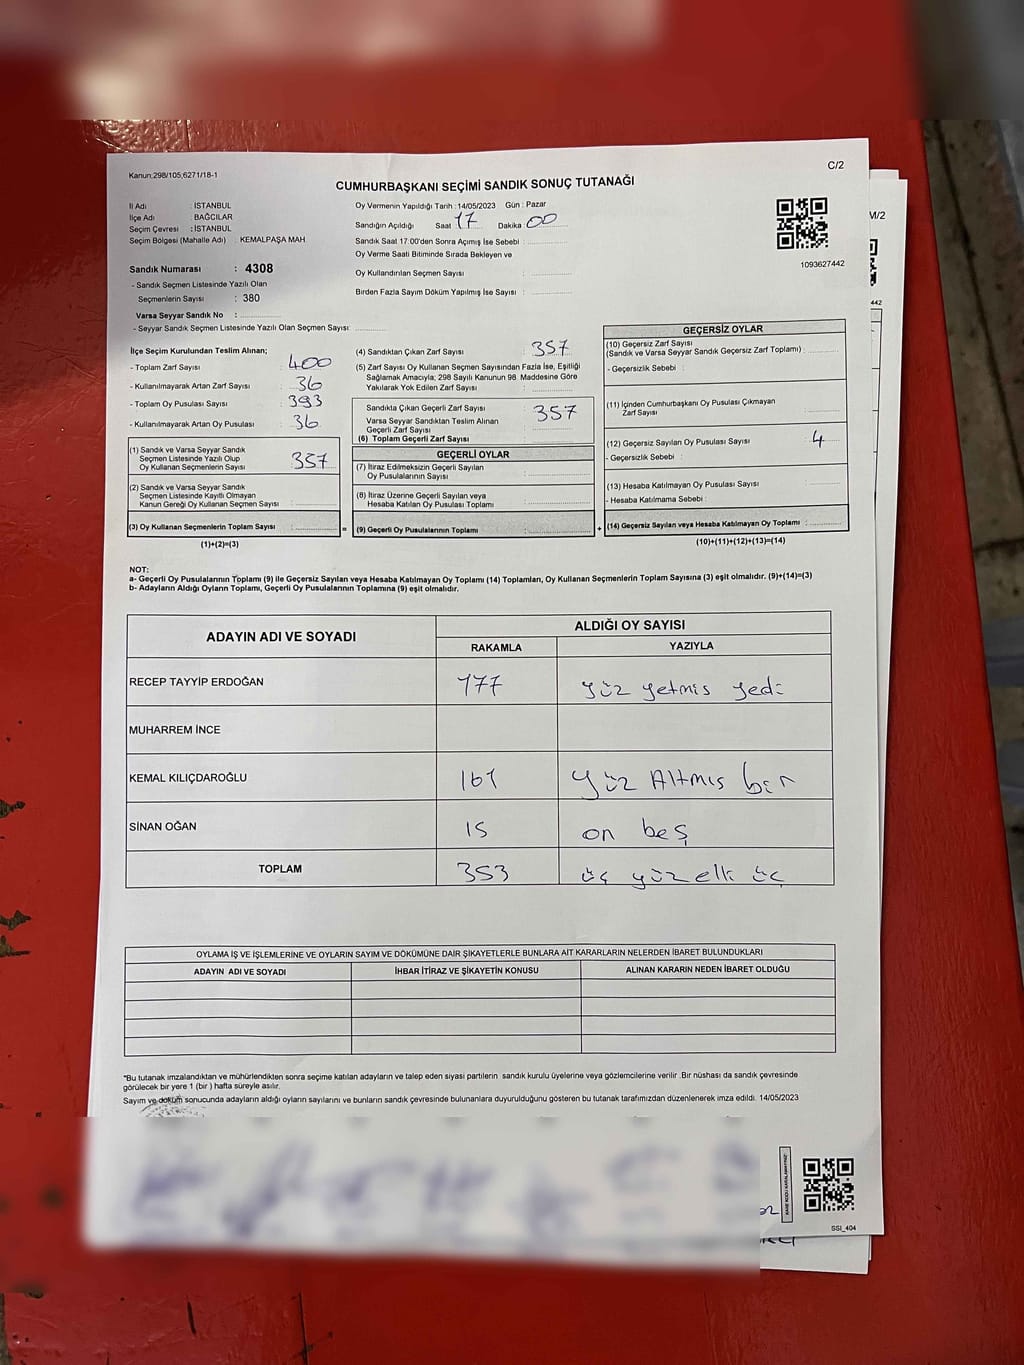 Kanun;298/105;6271/18-1
C/2
CUMHURBAŞKANI SEÇİMİ SANDIK SONUÇ TUTANAĞI
İl Adı : İSTANBUL
İlçe Adı : BAĞCILAR
Seçim Çevresi : İSTANBUL
Seçim Bölgesi (Mahalle Adı) : KEMALPAŞA MAH
Sandık Numarası : 4308
- Sandık Seçmen Listesinde Yazılı Olan
Seçmenlerin Sayısı : 380
Varsa Seyyar Sandık No :
- Seyyar Sandık Seçmen Listesinde Yazılı Olan Seçmen Sayısı:
Oy Vermenin Yapıldığı Tarih : 14/05/2023 Gün : Pazar
Sandığın Açıldığı Saat 17 Dakika 00
Sandık Saat 17.00'den Sonra Açımış İse Sebebi :
Oy Verme Saati Bitiminde Sırada Bekleyen ve
Oy Kullandırılan Seçmen Sayısı :
Birden Fazla Sayım Döküm Yapılmış İse Sayısı :
1093627442
M/2
442
İlçe Seçim Kurulundan Teslim Alınan;
- Toplam Zarf Sayısı : 400
- Kullanılmayarak Artan Zarf Sayısı : 36
- Toplam Oy Pusulası Sayısı : 393
- Kullanılmayarak Artan Oy Pusulası : 36
(1) Sandık ve Varsa Seyyar Sandık
Seçmen Listesinde Yazılı Olup
Oy Kullanan Seçmenlerin Sayısı : 357
(2) Sandık ve Varsa Seyyar Sandık
Seçmen Listesinde Kayıtlı Olmayan
Kanun Gereği Oy Kullanan Seçmen Sayısı :
(3) Oy Kullanan Seçmenlerin Toplam Sayısı :
(1)+(2)=(3)
=
(4) Sandıktan Çıkan Zarf Sayısı : 357
(5) Zarf Sayısı Oy Kullanan Seçmen Sayısından Fazla İse, Eşitliği
Sağlamak Amacıyla; 298 Sayılı Kanunun 98. Maddesine Göre
Yakılarak Yok Edilen Zarf Sayısı :
Sandıkta Çıkan Geçerli Zarf Sayısı : 357
Varsa Seyyar Sandıktan Teslim Alınan
Geçerli Zarf Sayısı :
(6) Toplam Geçerli Zarf Sayısı :
GEÇERLİ OYLAR
(7) İtiraz Edilmeksizin Geçerli Sayılan
Oy Pusulalarının Sayısı :
(8) İtiraz Üzerine Geçerli Sayılan veya
Hesaba Katılan Oy Pusulası Toplamı :
(9) Geçerli Oy Pusulalarının Toplamı :
+
GEÇERSİZ OYLAR
(10) Geçersiz Zarf Sayısı
(Sandık ve Varsa Seyyar Sandık Geçersiz Zarf Toplamı) :
- Geçersizlik Sebebi :
(11) İçinden Cumhurbaşkanı Oy Pusulası Çıkmayan
Zarf Sayısı :
(12) Geçersiz Sayılan Oy Pusulası Sayısı : 4
- Geçersizlik Sebebi :
(13) Hesaba Katılmayan Oy Pusulası Sayısı :
- Hesaba Katılmama Sebebi :
(14) Geçersiz Sayılan veya Hesaba Katılmayan Oy Toplamı :
(10)+(11)+(12)+(13)=(14)
NOT:
a- Geçerli Oy Pusulalarının Toplamı (9) ile Geçersiz Sayılan veya Hesaba Katılmayan Oy Toplamı (14) Toplamları, Oy Kullanan Seçmenlerin Toplam Sayısına (3) eşit olmalıdır. (9)+(14)=(3)
b- Adayların Aldığı Oyların Toplamı, Geçerli Oy Pusulalarının Toplamına (9) eşit olmalıdır.
ADAYIN ADI VE SOYADI
ALDIĞI OY SAYISI
RAKAMLA YAZIYLA
RECEP TAYYİP ERDOĞAN 177 yüz yetmis yedi
MUHARREM İNCE
KEMAL KILIÇDAROĞLU 161 yüz Altmış bir
SİNAN OĞAN 15 on beş
TOPLAM 353 üç yüz elli üç
OYLAMA İŞ VE İŞLEMLERİNE VE OYLARIN SAYIM VE DÖKÜMÜNE DAİR ŞİKAYETLERLE BUNLARA AİT KARARLARIN NELERDEN İBARET BULUNDUKLARI
ADAYIN ADI VE SOYADI İHBAR İTİRAZ VE ŞİKAYETİN KONUSU ALINAN KARARIN NEDEN İBARET OLDUĞU
*Bu tutanak imzalandıktan ve mühürlendikten sonra seçime katılan adayların ve talep eden siyasi partilerin sandık kurulu üyelerine veya gözlemcilerine verilir .Bir nüshası da sandık çevresinde
görülecek bir yere 1 (bir ) hafta süreyle asılır.
Sayım ve döküm sonucunda adayların aldığı oyların sayılarını ve bunların sandık çevresinde bulunanlara duyurulduğunu gösteren bu tutanak tarafımızdan düzenlenerek imza edildi. 14/05/2023
KARE KODU KARALAMAYINIZ!
SSI_404